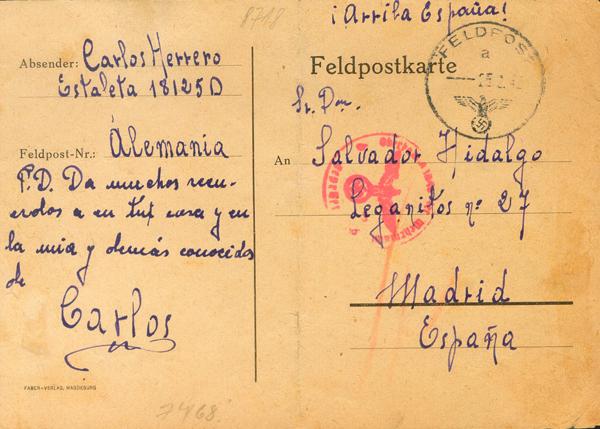 8718
¡Arriba España!
Absender: Carlos Herrero
Estafeta 18125D
Feldpost-Nr.: Alemania
P.D. Da muchos recu-
erdos a en tu casa y en
la mia y demás conocidos
de
Carlos
FABER-VERLAG, MAGDEBURG
7468.
Feldpostkarte
FELDPOST
a
Sr. Don
An Salvador Hidalgo
Leganitos nº 27
Madrid
España